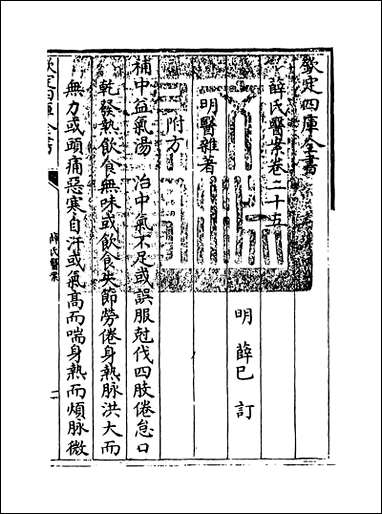 欽定四庫全書
薛氏醫案卷二十五
明 薛已 訂
明醫雜著
附方
補中益氣湯 治中氣不足或誤服尅伐四肢倦怠口
乾發熱飲食無味或飲食失節勞倦身熱脉洪大而
無力或頭痛惡寒自汗或氣髙而喘身熱而煩脉微
欽定四庫全書
薛氏醫案